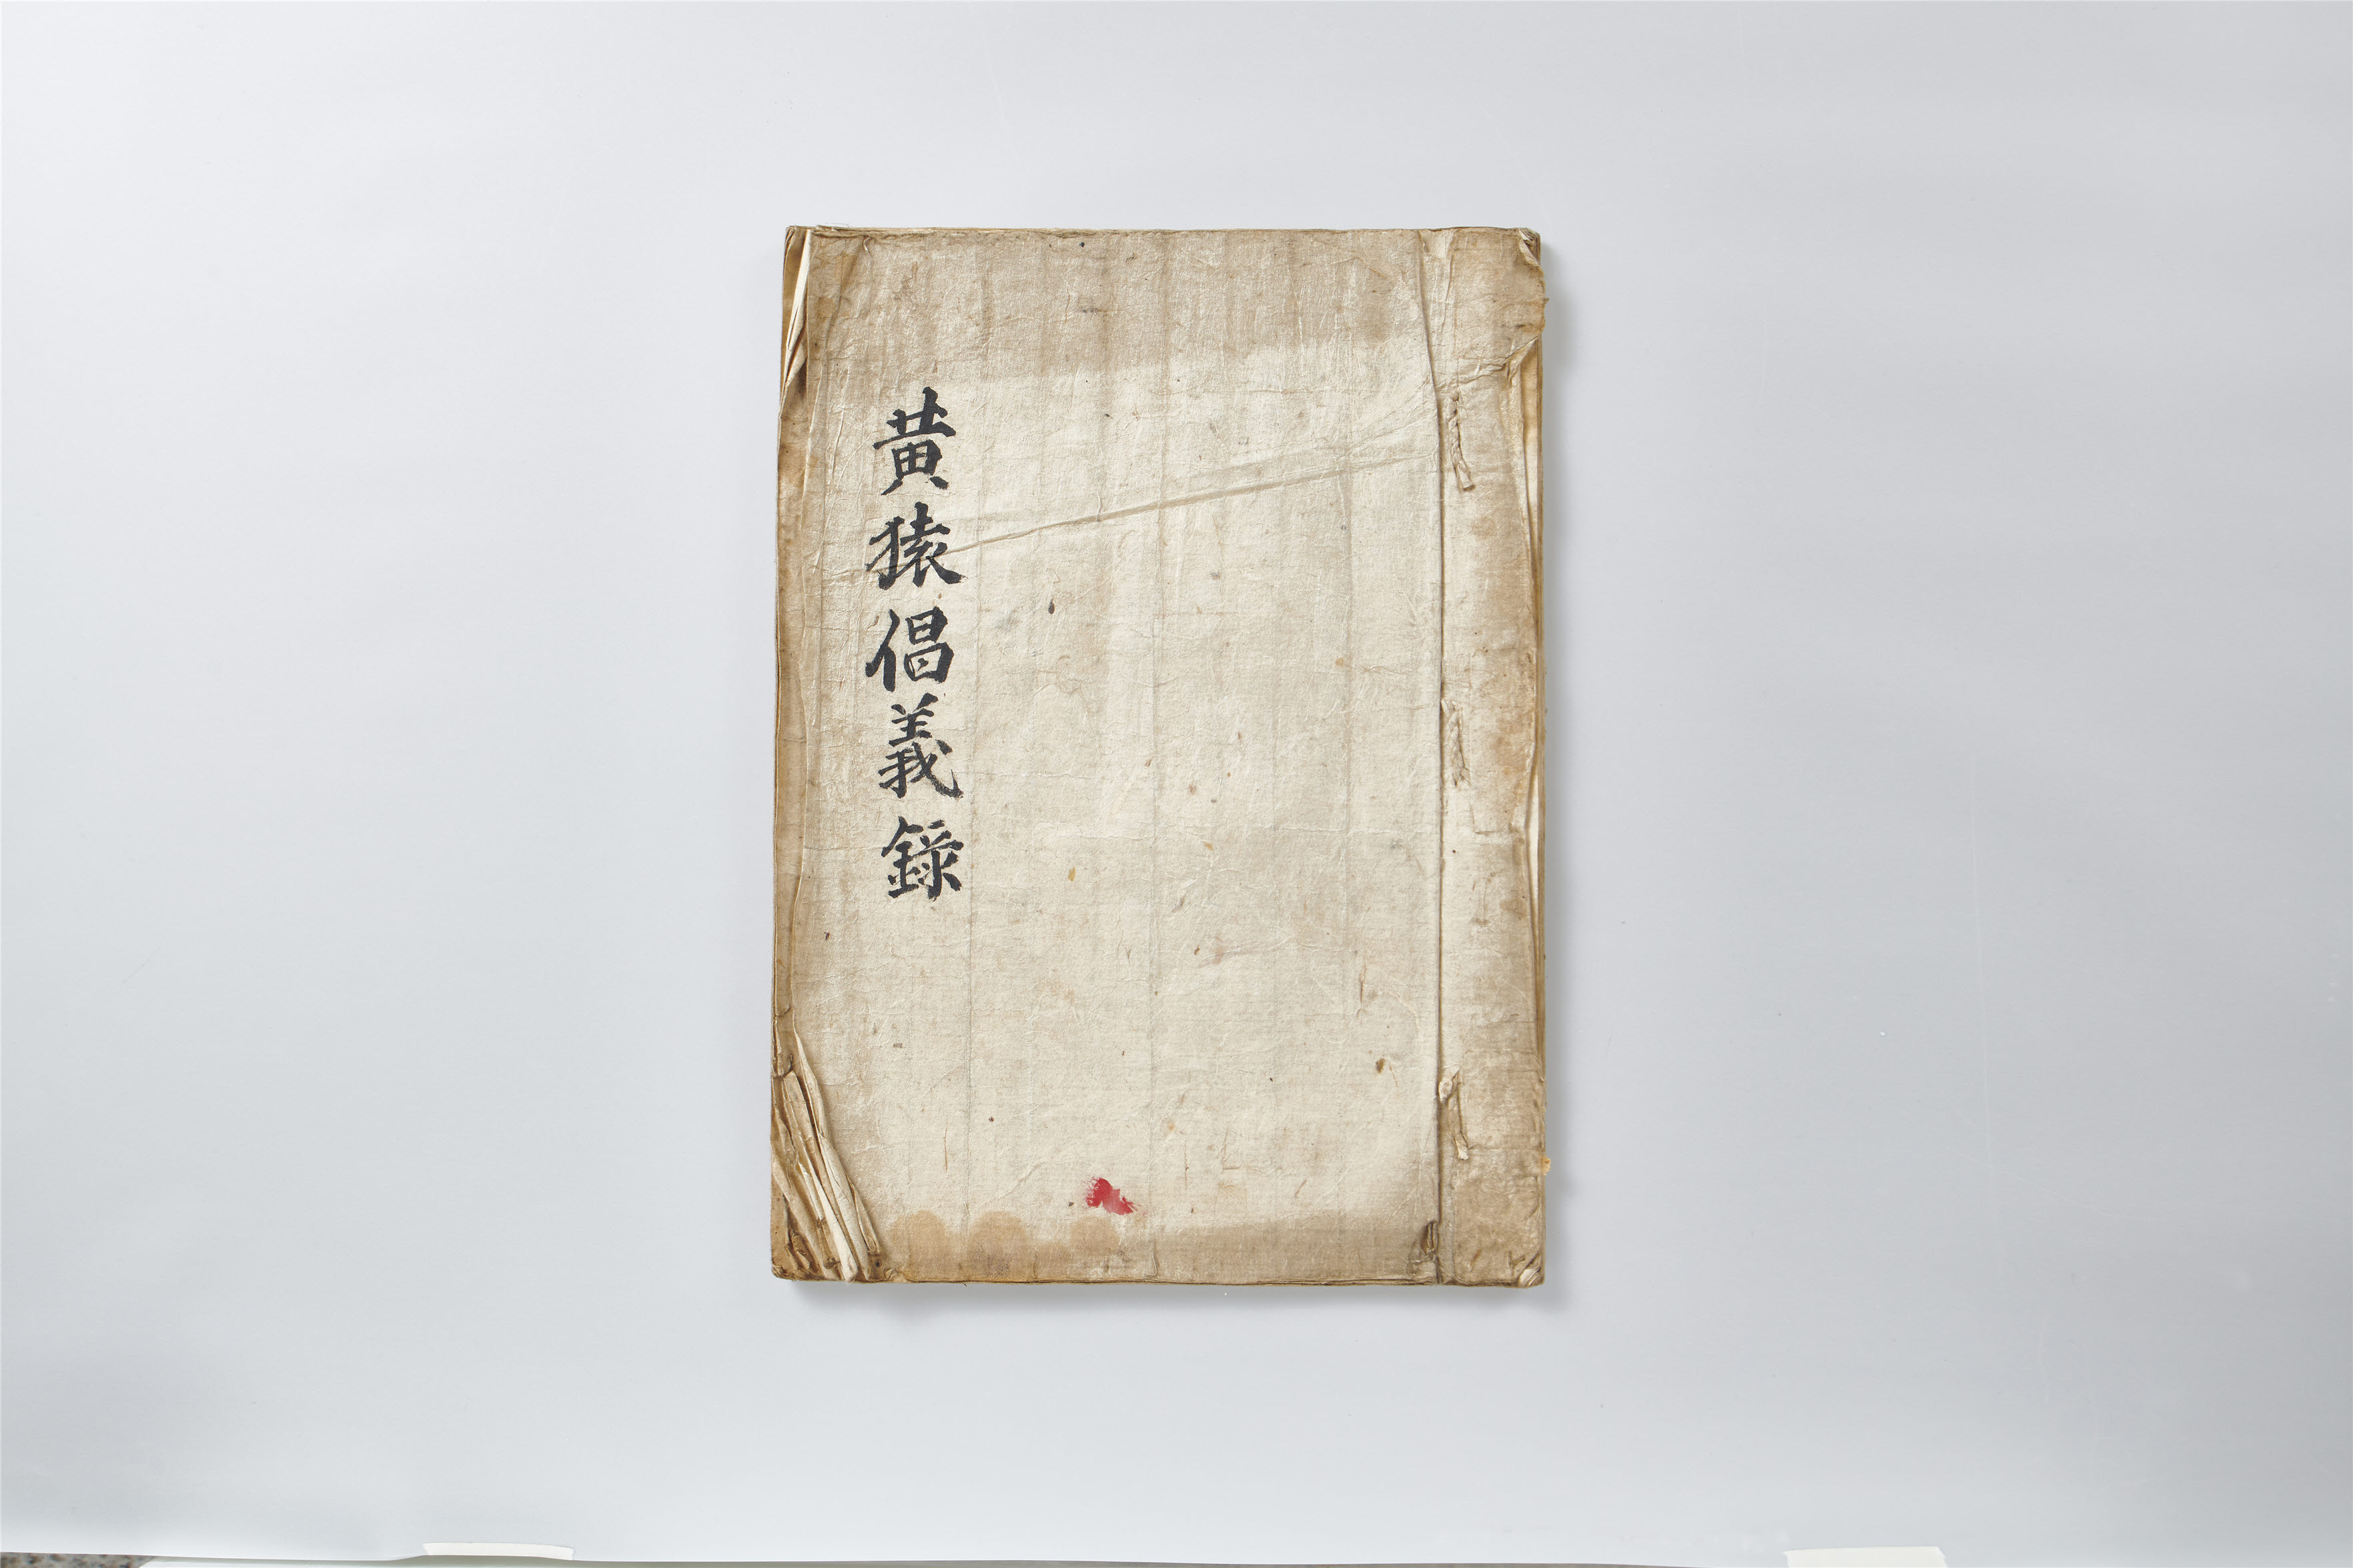 黃猿倡義錄